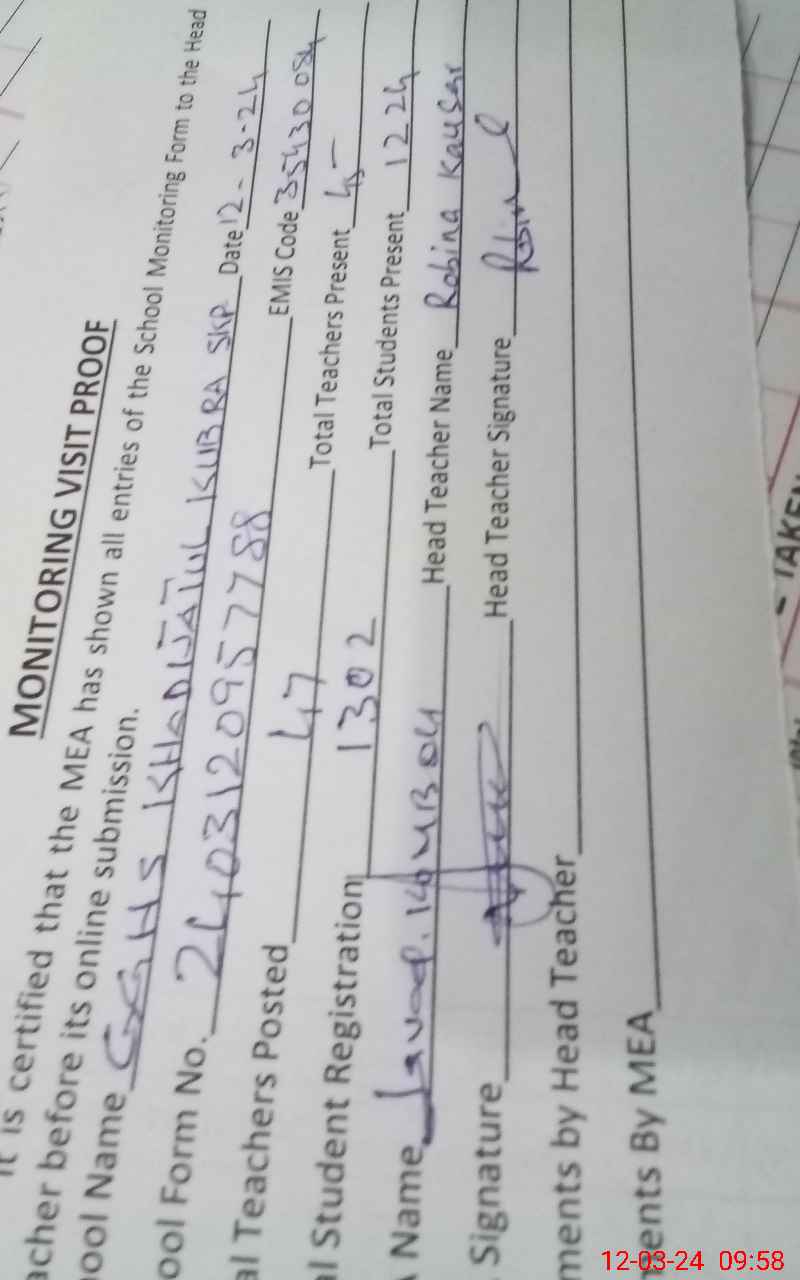 MONITORING VISIT PROOF
It is certified that the MEA has shown all entries of the School Monitoring Form to the Head
acher before its online submission.
ool Name GGHS KHADIJATUL KUBRA SKP Date 12-3-24
ool Form No. 2403120957788 EMIS Code 35430084
al Teachers Posted 47 Total Teachers Present 45
al Student Registration 1302 Total Students Present 1224
Name Head Teacher Name Robina Kausar
Signature Head Teacher Signature
ments by Head Teacher
ments By MEA
TAKEN
12-03-24 09:58